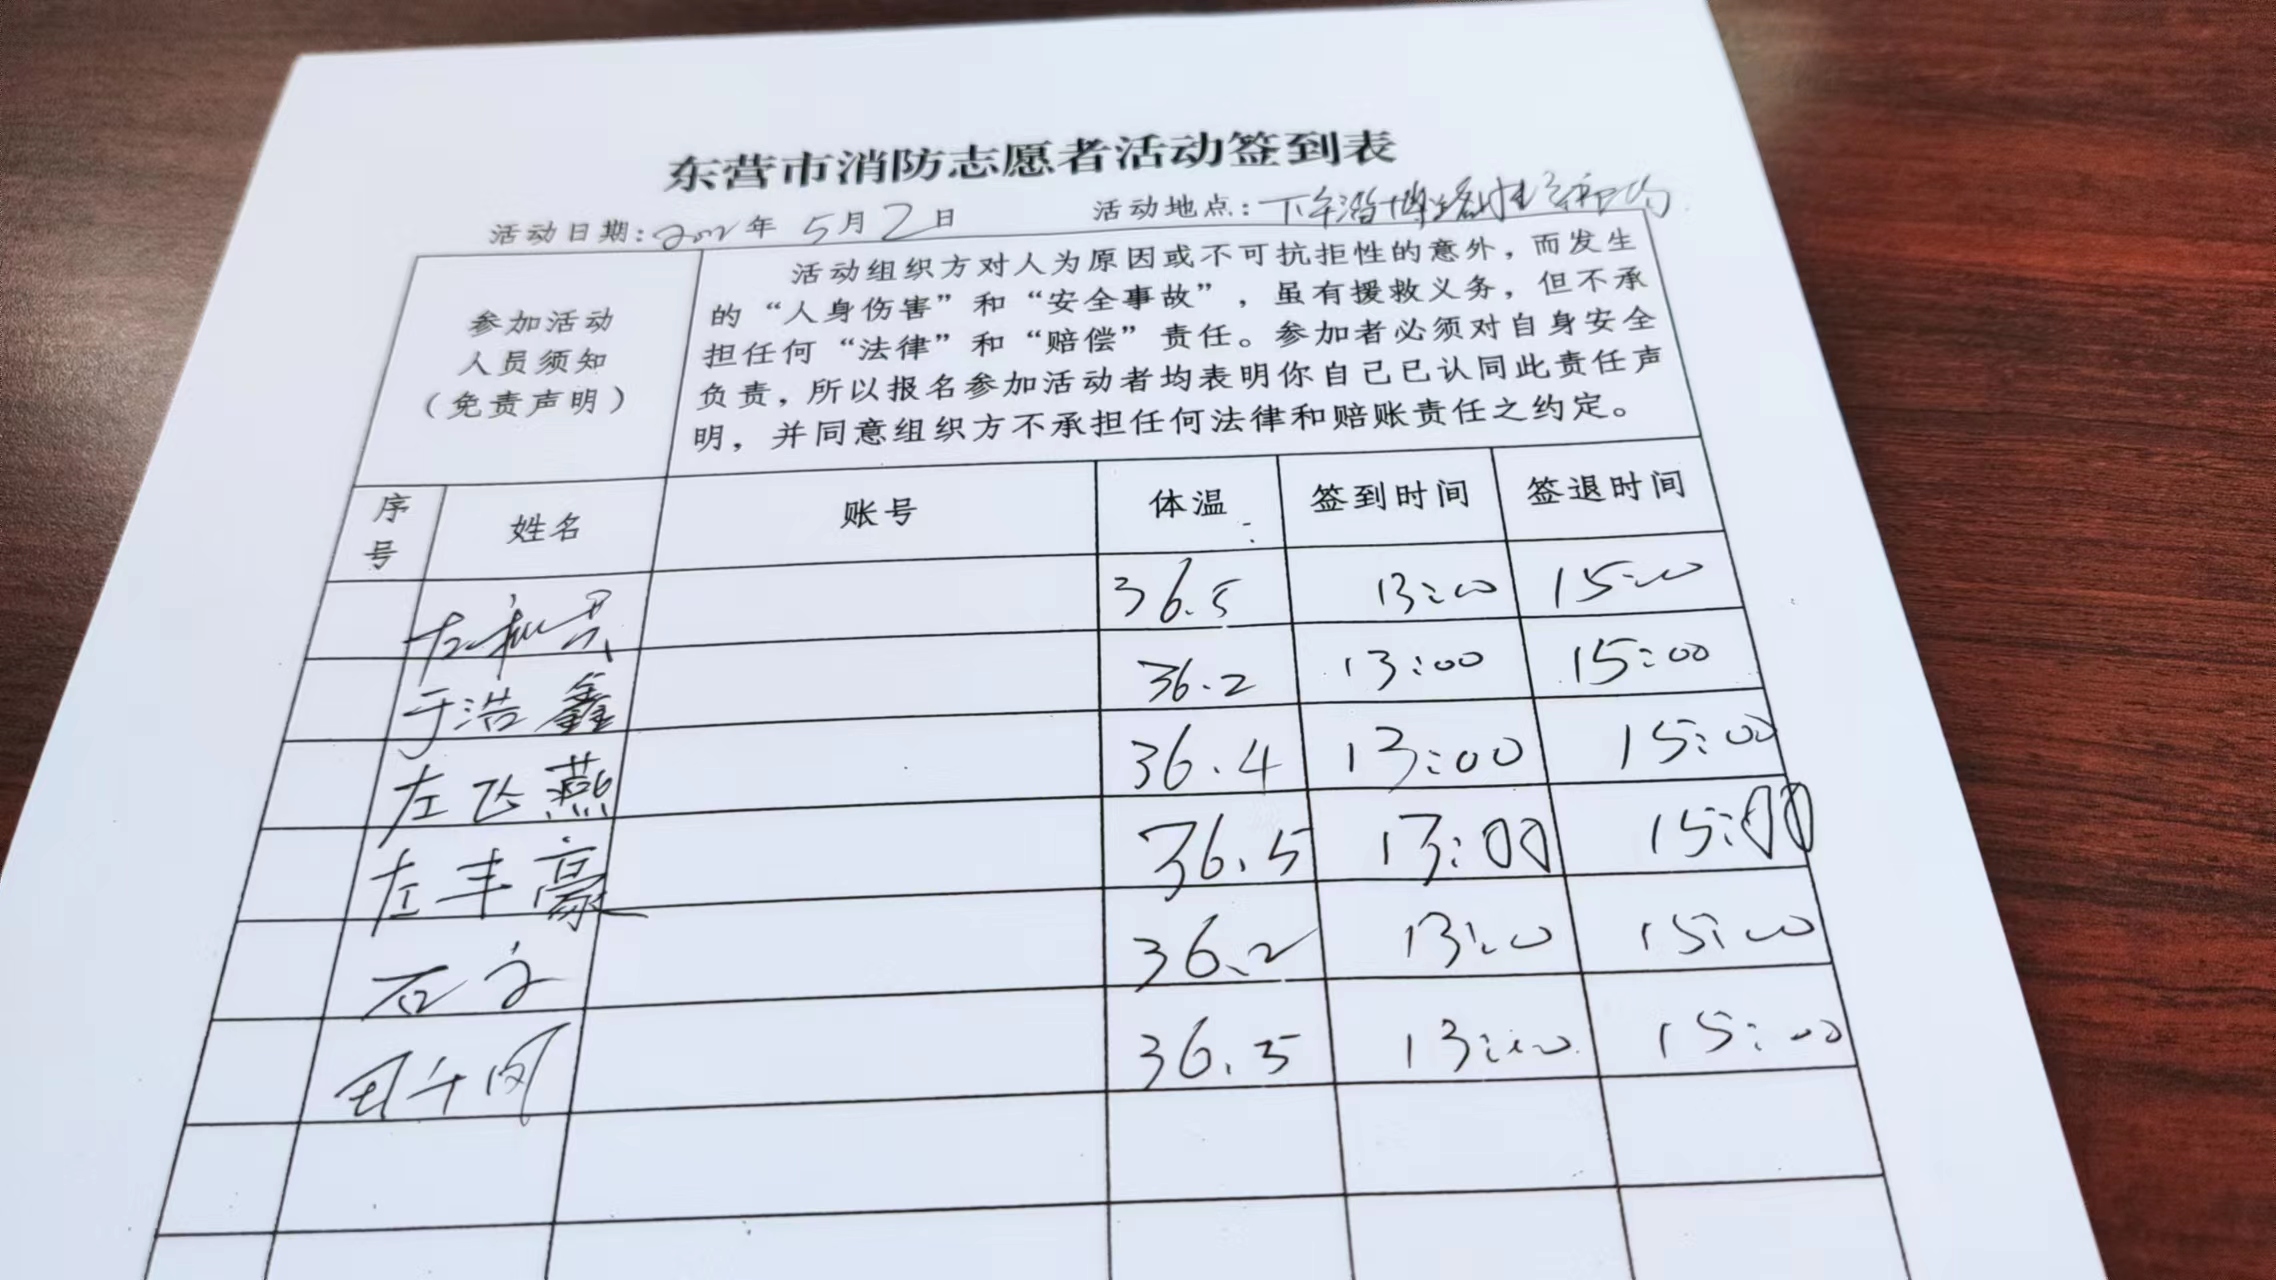 东营市消防志愿者活动签到表
活动日期:2022年 5月2日 活动地点:
参加活动
人员须知
(免责声明)
活动组织方对人为原因或不可抗拒性的意外,而发生
的“人身伤害”和“安全事故”,虽有援救义务,但不承
担任何“法律”和“赔偿”责任。参加者必须对自身安全
负责,所以报名参加活动者均表明你自己已认同此责任声
明,并同意组织方不承担任何法律和赔账责任之约定。
序号 姓名 账号 体温 签到时间 签退时间
36.5 13:00 15:00
于浩鑫 36.2 13:00 15:00
左飞燕 36.4 13:00 15:00
左丰豪 36.5 13:00 15:00
石文 36.2 13:00 15:00
36.5 13:00 15:00